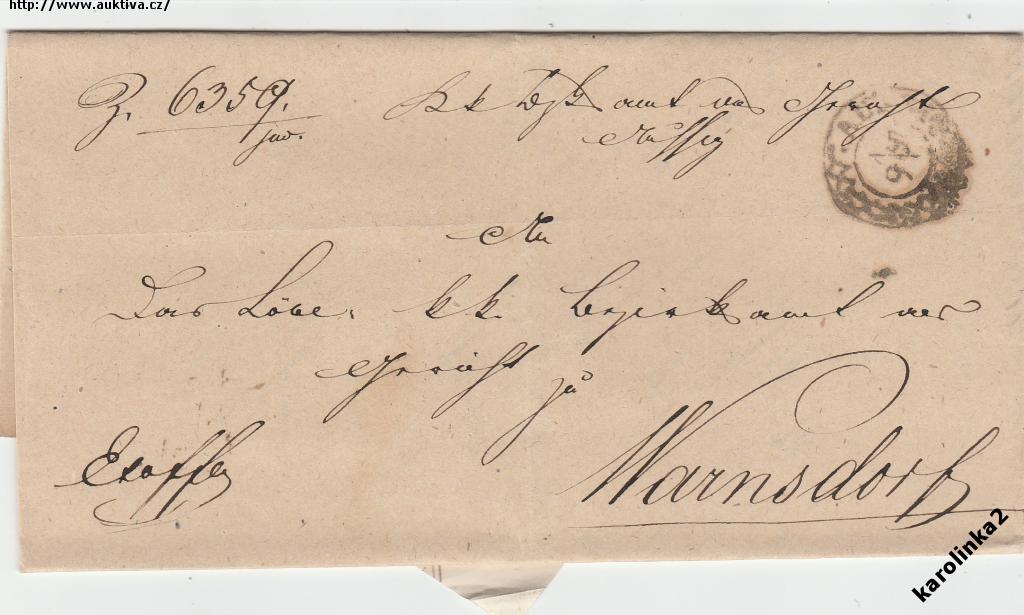 http://www.auktiva.cz/
Z. 6359.
jud.
K k Bzk amt als Gericht
Aussig
An
Das Löbl. k k. Bezirksamt als
Gericht
zu
Warnsdorf
karolinka2